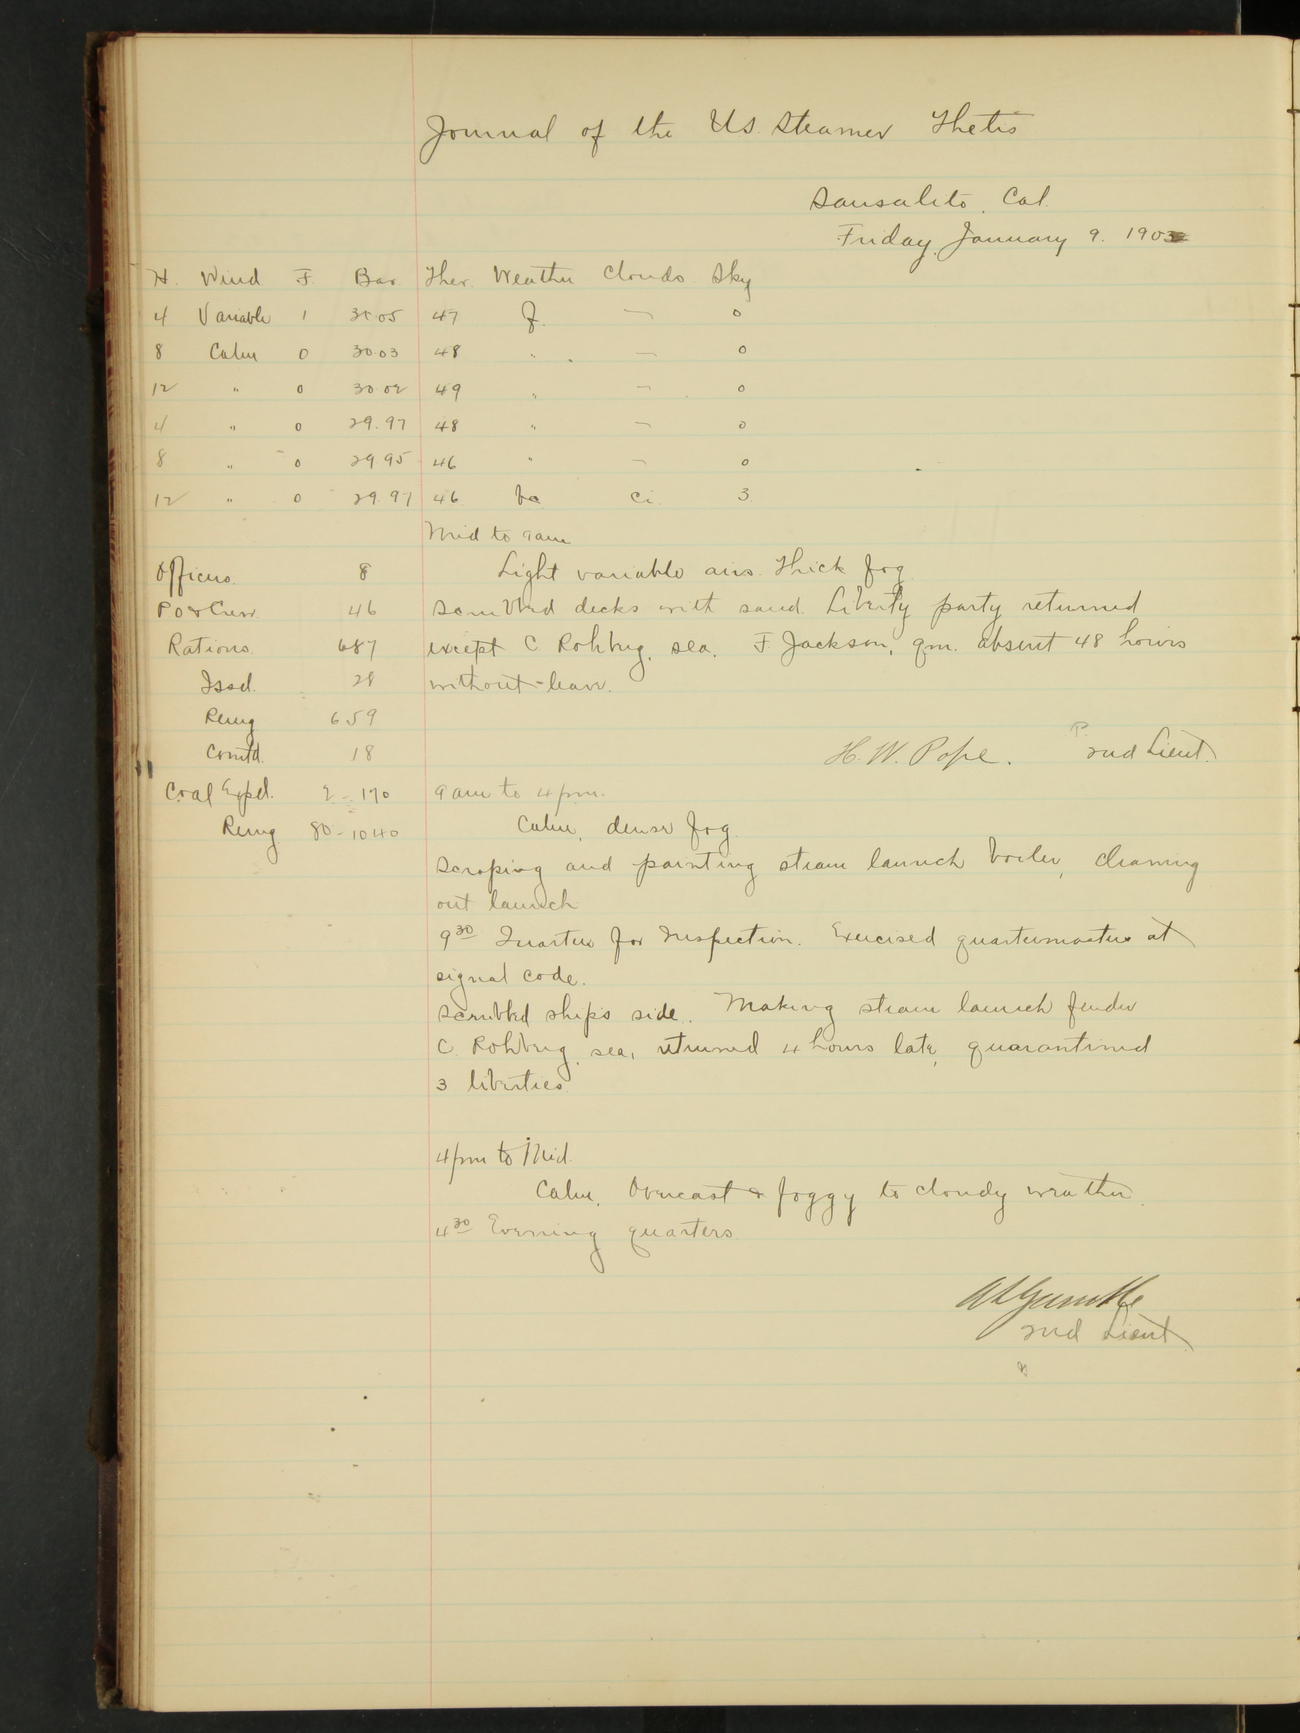 Journal of the U.S. Steamer Thetis
Sausalito, Cal.
Friday, January 9. 1903
H. Wind F. Bar. Ther. Weather Clouds Sky
4 Variable 1 30.05 47 f. — 0
8 Calm 0 30.03 48 " — 0
12 " 0 30.02 49 " — 0
4 " 0 29.97 48 " — 0
8 " 0 29.95 46 " — 0
12 " 0 29.97 46 bc Ci. 3
Mid to 9 am
Officers. 8 Light variable airs. Thick fog.
PO & Crew 46 Scrubbed decks with sand. Liberty party returned
Rations. 687 except C Rohbrg, sea. F. Jackson, qm. absent 48 hours
Issd. 28 without leave.
Remg 659
Comtd. 18 H. W. Pope. 2nd Lieut.
Coal Expd. 2 - 170 9 am to 4 pm.
Remg 80 - 1040 Calm, dense fog.
Scraping and painting steam launch boiler, cleaning
out launch
9 30 Quarters for Inspection. Exercised quartermasters at
signal code.
Scrubbed ship's side. Making steam launch fender
C. Rohbrg, sea, returned 4 hours late, quarantined
3 liberties.
4 pm to Mid.
Calm, Overcast & foggy to cloudy weather.
4 30 Evening quarters
A L Gamble
2nd Lieut